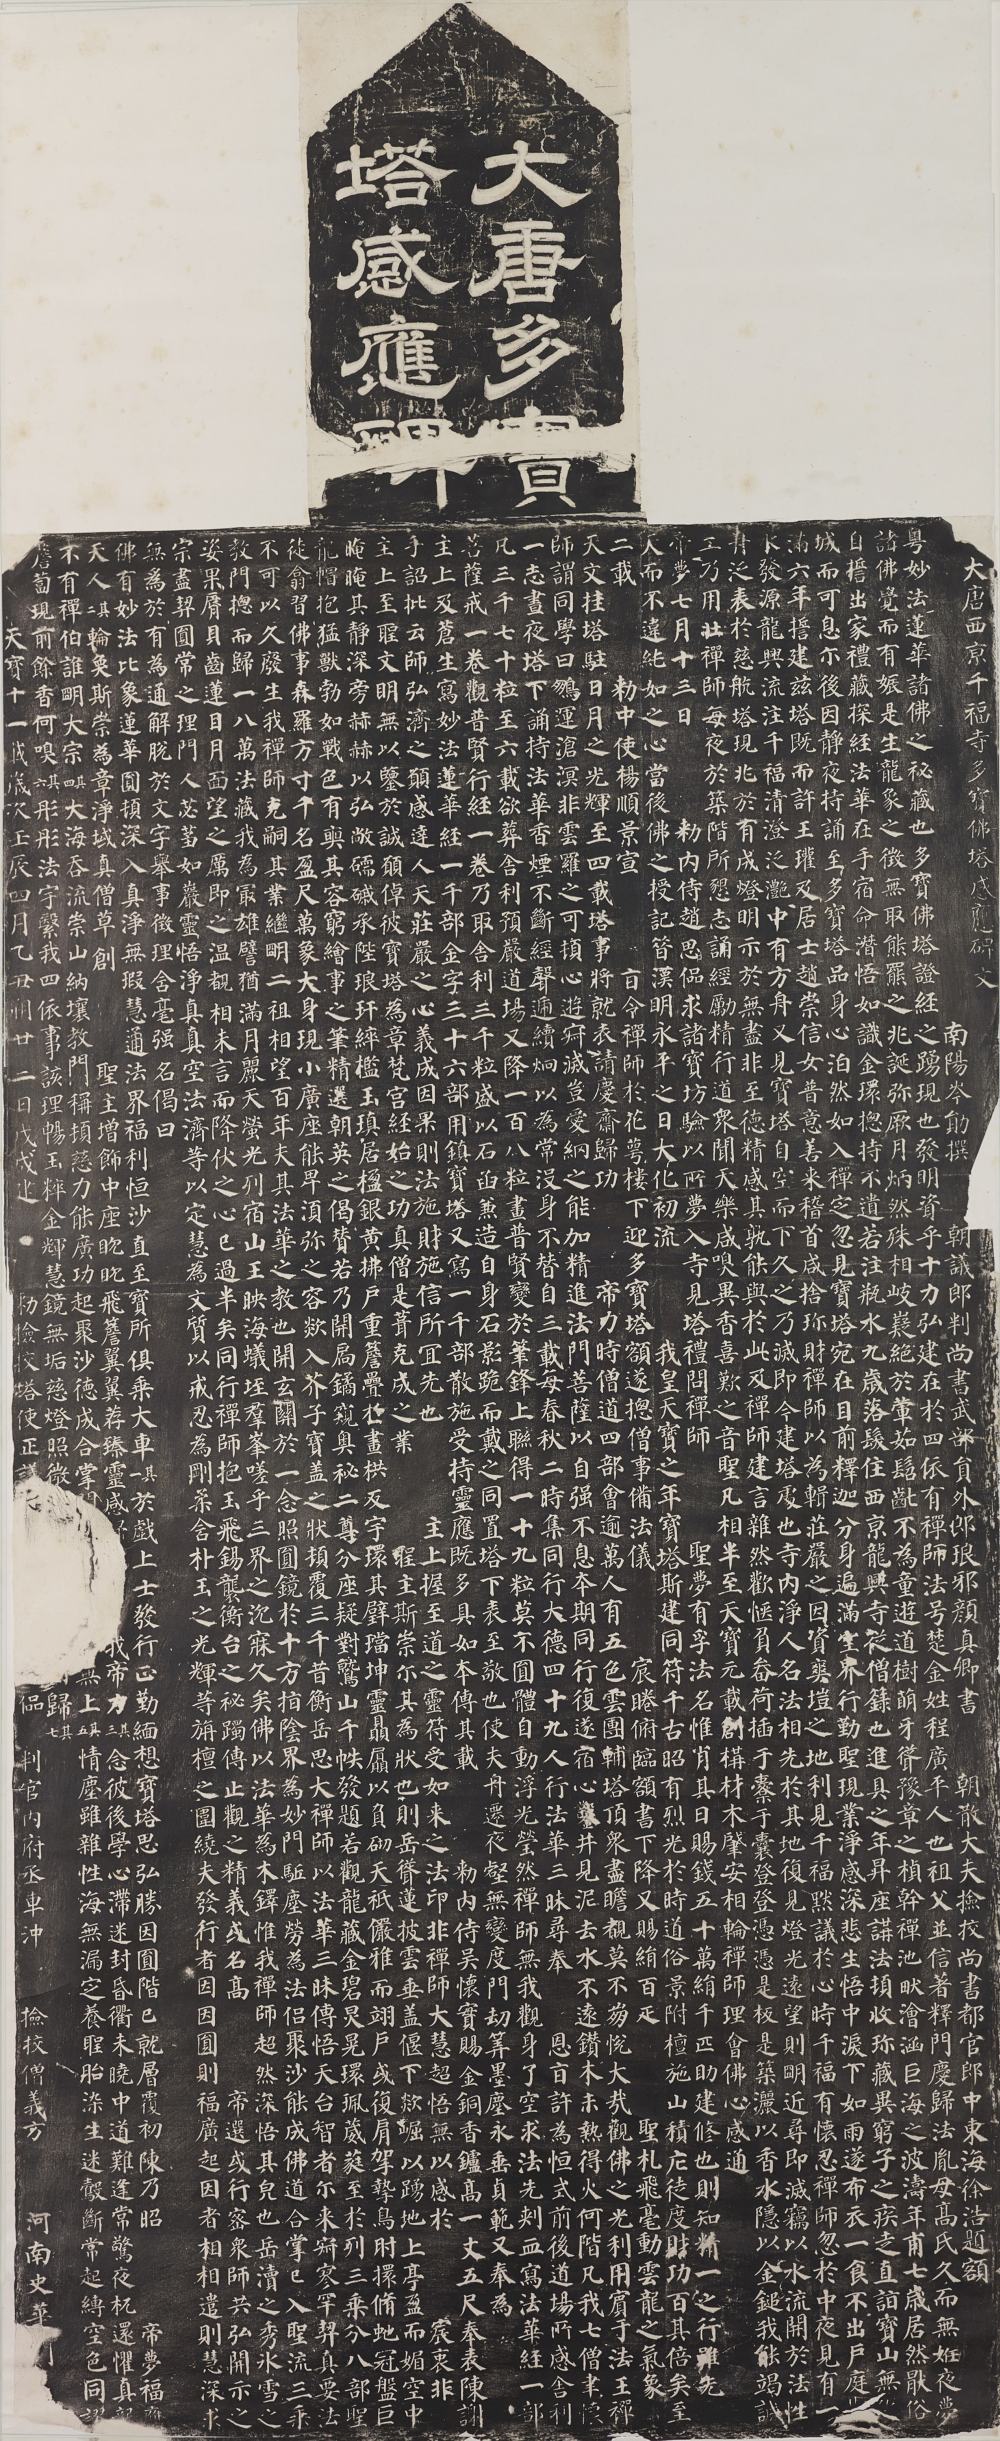 大唐多寶
塔感應碑
大唐西京千福寺多寶佛塔感應碑文 南陽岑勛撰 朝議郎判尚書武部員外郎琅邪顏真卿書 朝散大夫撿校尚書都官郎中東海徐浩題額
粵妙法蓮華諸佛之秘藏也多寶佛塔證經之踴現也發明資乎十力弘建在於四依有禪師法号楚金姓程廣平人也祖父並信著釋門慶歸法胤母高氏久而無姙夜夢
諸佛覺而有娠是生龍象之徵無取熊羆之兆誕弥厥月炳然殊相岐嶷絕於葷茹髫齔不為童遊道樹萌牙聳豫章之楨幹禪池畎澮涵巨海之波濤年甫七歲居然猒俗
自誓出家禮藏探經法華在手宿命潛悟如識金環揔持不遺若注瓶水九歲落髮住西京龍興寺從僧籙也進具之年昇座講法頓收珍藏異窮子之疾走直詣寶山無化
城而可息尔後因靜夜持誦至多寶塔品身心泊然如入禪定忽見寶塔宛在目前釋迦分身遍滿空界行勤聖現業淨感深悲生悟中淚下如雨遂布衣一食不出戶庭期
滿六年誓建茲塔既而許王瓘及居士趙崇信女普意善来稽首咸捨珍財禪師以為輯莊嚴之因資爽塏之地利見千福默議於心時千福有懷忍禪師忽於中夜見有一
水發源龍興流注千福清澄泛灩中有方舟又見寶塔自空而下久之乃滅即今建塔處也寺內淨人名法相先於其地復見燈光遠望則明近尋即滅竊以水流開於法性
舟泛表於慈航塔現兆於有成燈明示於無盡非至德精感其孰能與於此及禪師建言雜然歡愜負畚荷插于橐于囊登登憑憑是板是築灑以香水隱以金鎚我能竭誠
工乃用壯禪師每夜於築階所懇志誦經勵精行道衆聞天樂咸嗅異香喜歎之音聖凡相半至天寶元載創構材木肇安相輪禪師理會佛心感通
帝夢七月十三日 勑內侍趙思偘求諸寶坊驗以所夢入寺見塔禮問禪師 聖夢有孚法名惟肖其日賜錢五十萬絹千匹助建修也則知精一之行雖先
天而不違純如之心當後佛之授記昔漢明永平之日大化初流 我皇天寶之年寶塔斯建同符千古昭有烈光於時道俗景附檀施山積庀徒度財功百其倍矣至
二載 勑中使楊順景宣 旨令禪師於花萼樓下迎多寶塔額遂揔僧事備法儀 宸睠俯臨額書下降又賜絹百疋 聖札飛毫動雲龍之氣象
天文挂塔駐日月之光輝至四載塔事將就表請慶齋歸功 帝力時僧道四部會逾萬人有五色雲團輔塔頂衆盡瞻覩莫不崩悅大哉觀佛之光利用賓于法王禪
師謂同學曰鵬運滄溟非雲羅之可頓心遊寂滅豈愛網之能加精進法門菩薩以自强不息夲期同行復遂宿心鑿井見泥去水不遠鑽木未熱得火何階凡我七僧聿懷
一志晝夜塔下誦持法華香煙不斷經聲遞續炯以為常沒身不替自三載每春秋二時集同行大德四十九人行法華三昧尋奉 恩旨許為恒式前後道場所感舍利
凡三千七十粒至六載欲葬舍利預嚴道場又降一百八粒畫普賢變於筆鋒上聯得一十九粒莫不圓體自動浮光瑩然禪師無我觀身了空求法先刺血寫法華經一部
菩薩戒一卷觀普賢行經一卷乃取舍利三千粒盛以石函兼造自身石影跪而戴之同置塔下表至敬也使夫舟遷夜壑無變度門劫筭墨塵永垂貞範又奉為
主上及蒼生寫妙法蓮華經一千部金字三十六部用鎮寶塔又寫一千部散施受持靈應既多具如本傳其載 勑內侍吳懷實賜金銅香鑪高一丈五尺奉表陳謝
手詔批云師弘濟之願感達人天莊嚴之心義成因果則法施財施信所冝先也 主上握至道之靈符受如来之法印非禪師大慧超悟無以感於 宸衷非
主上至聖文明無以鑒於誠願倬彼寶塔為章梵宮經始之功真僧是葺克成之業 聖主斯崇尔其為狀也則岳聳蓮披雲垂蓋偃下欻崛以踴地上亭盈而媚空中
晻晻其靜深旁赫赫以弘敞礝磩承陛琅玕綷檻玉瑱居楹銀黃拂戶重簷疊於畫栱反宇環其璧璫坤靈贔屓以負砌天祇儼雅而翊戶或復肩挐摯鳥肘擐脩虵冠盤巨
龍帽抱猛獸勃如戰色有奭其容窮繪事之筆精選朝英之偈贊若乃開扃鐍窺奧秘二尊分座疑對鷲山千帙發題若觀龍藏金碧炅晃環珮葳蕤至於列三乘分八部聖
徒翕習佛事森羅方寸千名盈尺萬象大身現小廣座能卑湏弥之容欻入芥子寶蓋之狀頓覆三千昔衡岳思大禪師以法華三昧傳悟天台智者尓来寂寥罕契真要法
不可以久廢生我禪師克嗣其業繼明二祖相望百年夫其法華之教也開玄關於一念照圓鏡於十方指陰界為妙門駈塵勞為法侶聚沙能成佛道合掌已入聖流三乘
教門揔而歸一八萬法藏我為冣雄譬猶滿月麗天螢光列宿山王映海蟻垤羣峯嗟乎三界之沉寐久矣佛以法華為木鐸惟我禪師超然深悟其皃也岳瀆之秀冰雪之
姿果脣貝齒蓮目月面望之厲即之温覩相未言而降伏之心已過半矣同行禪師抱玉飛錫襲衡台之秘躅傳止觀之精義或名高 帝選或行密衆師共弘開示之
宗盡契圓常之理門人苾蒭如巖靈悟淨真真空法濟等以定慧為文質以戒忍為剛柔含朴玉之光輝等旃檀之圍繞夫發行者因因圓則福廣起因者相相遣則慧深求
無為於有為通解脫於文字舉事徵理含毫强名偈曰
佛有妙法比象蓮華圓頓深入真淨無瑕慧通法界福利恒沙直至寶所俱乘大車其一於戲上士發行正勤緬想寶塔思弘勝因圓階已就層覆初陳乃昭 帝夢福應
天人其二輪奐斯崇為章淨域真僧草創 聖主增飾中座眈眈飛簷翼翼荐臻靈感 我帝力其三念彼後學心滯迷封昏衢未曉中道難逢常驚夜枕還懼真龍
不有禪伯誰明大宗其四大海吞流崇山納壤教門稱頓慈力能廣功起聚沙德成合掌 無上其五情塵雖雜性海無漏定養聖胎染生迷鷇斷常起縛空色同謬
簷蔔現前餘香何嗅其六彤彤法宇繄我四依事該理暢玉粹金輝慧鏡無垢慈燈照微 歸其七
天寶十一載歲次壬辰四月乙丑朔廿二日戊戌建 勑撿挍塔使正議 偘 判官內府丞車沖 撿挍僧義方 河南史華